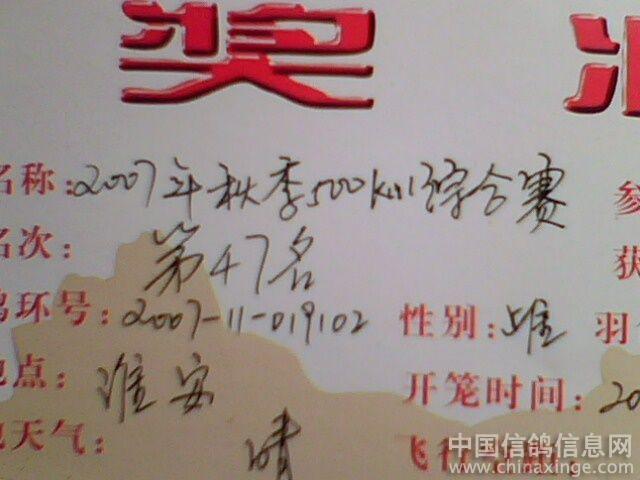 奖
名称：2007年秋季500km综合赛 参
名次：第47名 获
鸽环号：2007-11-019102 性别：雌 羽
地点：淮安 开笼时间：20
地天气：晴 飞行
中国信鸽信息网
www.chinaxinge.com